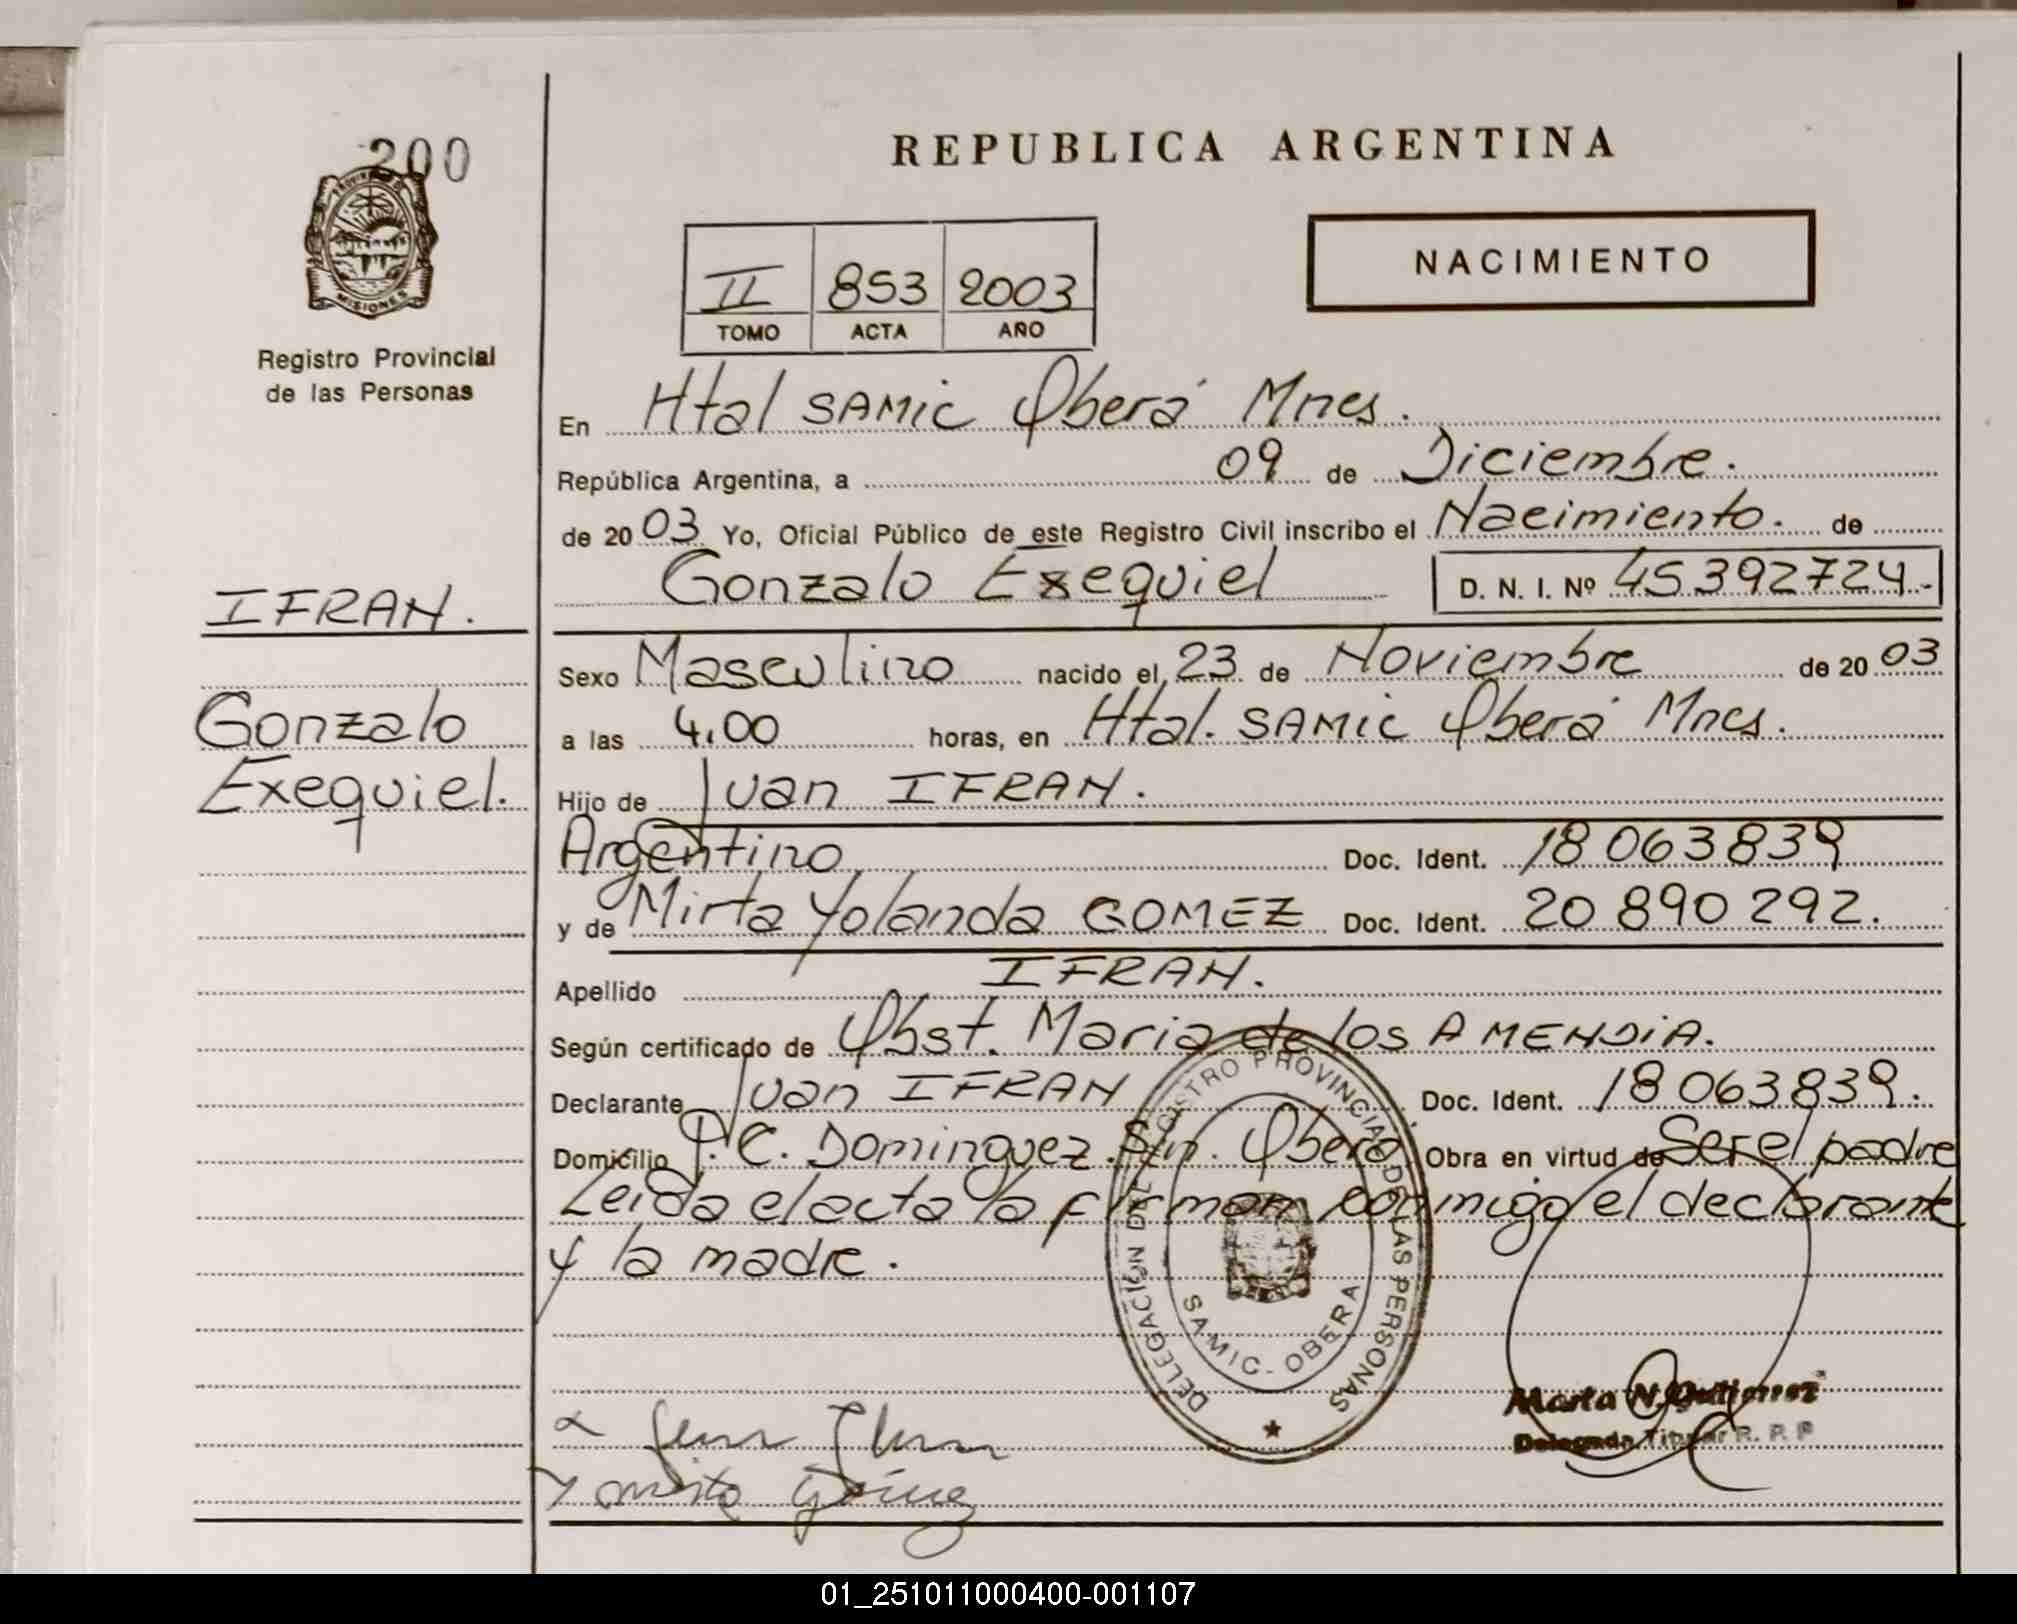 200
PROVINCIA DE
MISIONES
Registro Provincial
de las Personas
IFRAN.
Gonzalo
Exequiel.
REPUBLICA ARGENTINA
II 853 2003
TOMO ACTA AÑO
NACIMIENTO
En Htal SAMIC Oberá Mnes.
República Argentina, a 09 de Diciembre.
de 2003 Yo, Oficial Público de este Registro Civil inscribo el Nacimiento. de
Gonzalo Exequiel D. N. I. Nº 45392724.-
Sexo Masculino nacido el 23 de Noviembre de 2003
a las 4,00 horas, en Htal. SAMIC Oberá Mnes.
Hijo de Juan IFRAN.
Argentino Doc. Ident. 18 063839
y de Mirta Yolanda GOMEZ Doc. Ident. 20 890 292.
Apellido IFRAN.
Según certificado de Obst. Maria de los A MENDIA.
Declarante Juan IFRAN Doc. Ident. 18 063839.
Domicilio P.C. Dominguez S/n. Oberá Obra en virtud de Ser el padre
Leida el acta la firman conmigo el declarante
y la madre.
DELEGACIÓN DEL REGISTRO PROVINCIAL DE LAS PERSONAS
SAMIC - OBERA
Marta N. Gutierrez
Delegada Titular R. P. P
01_251011000400-001107